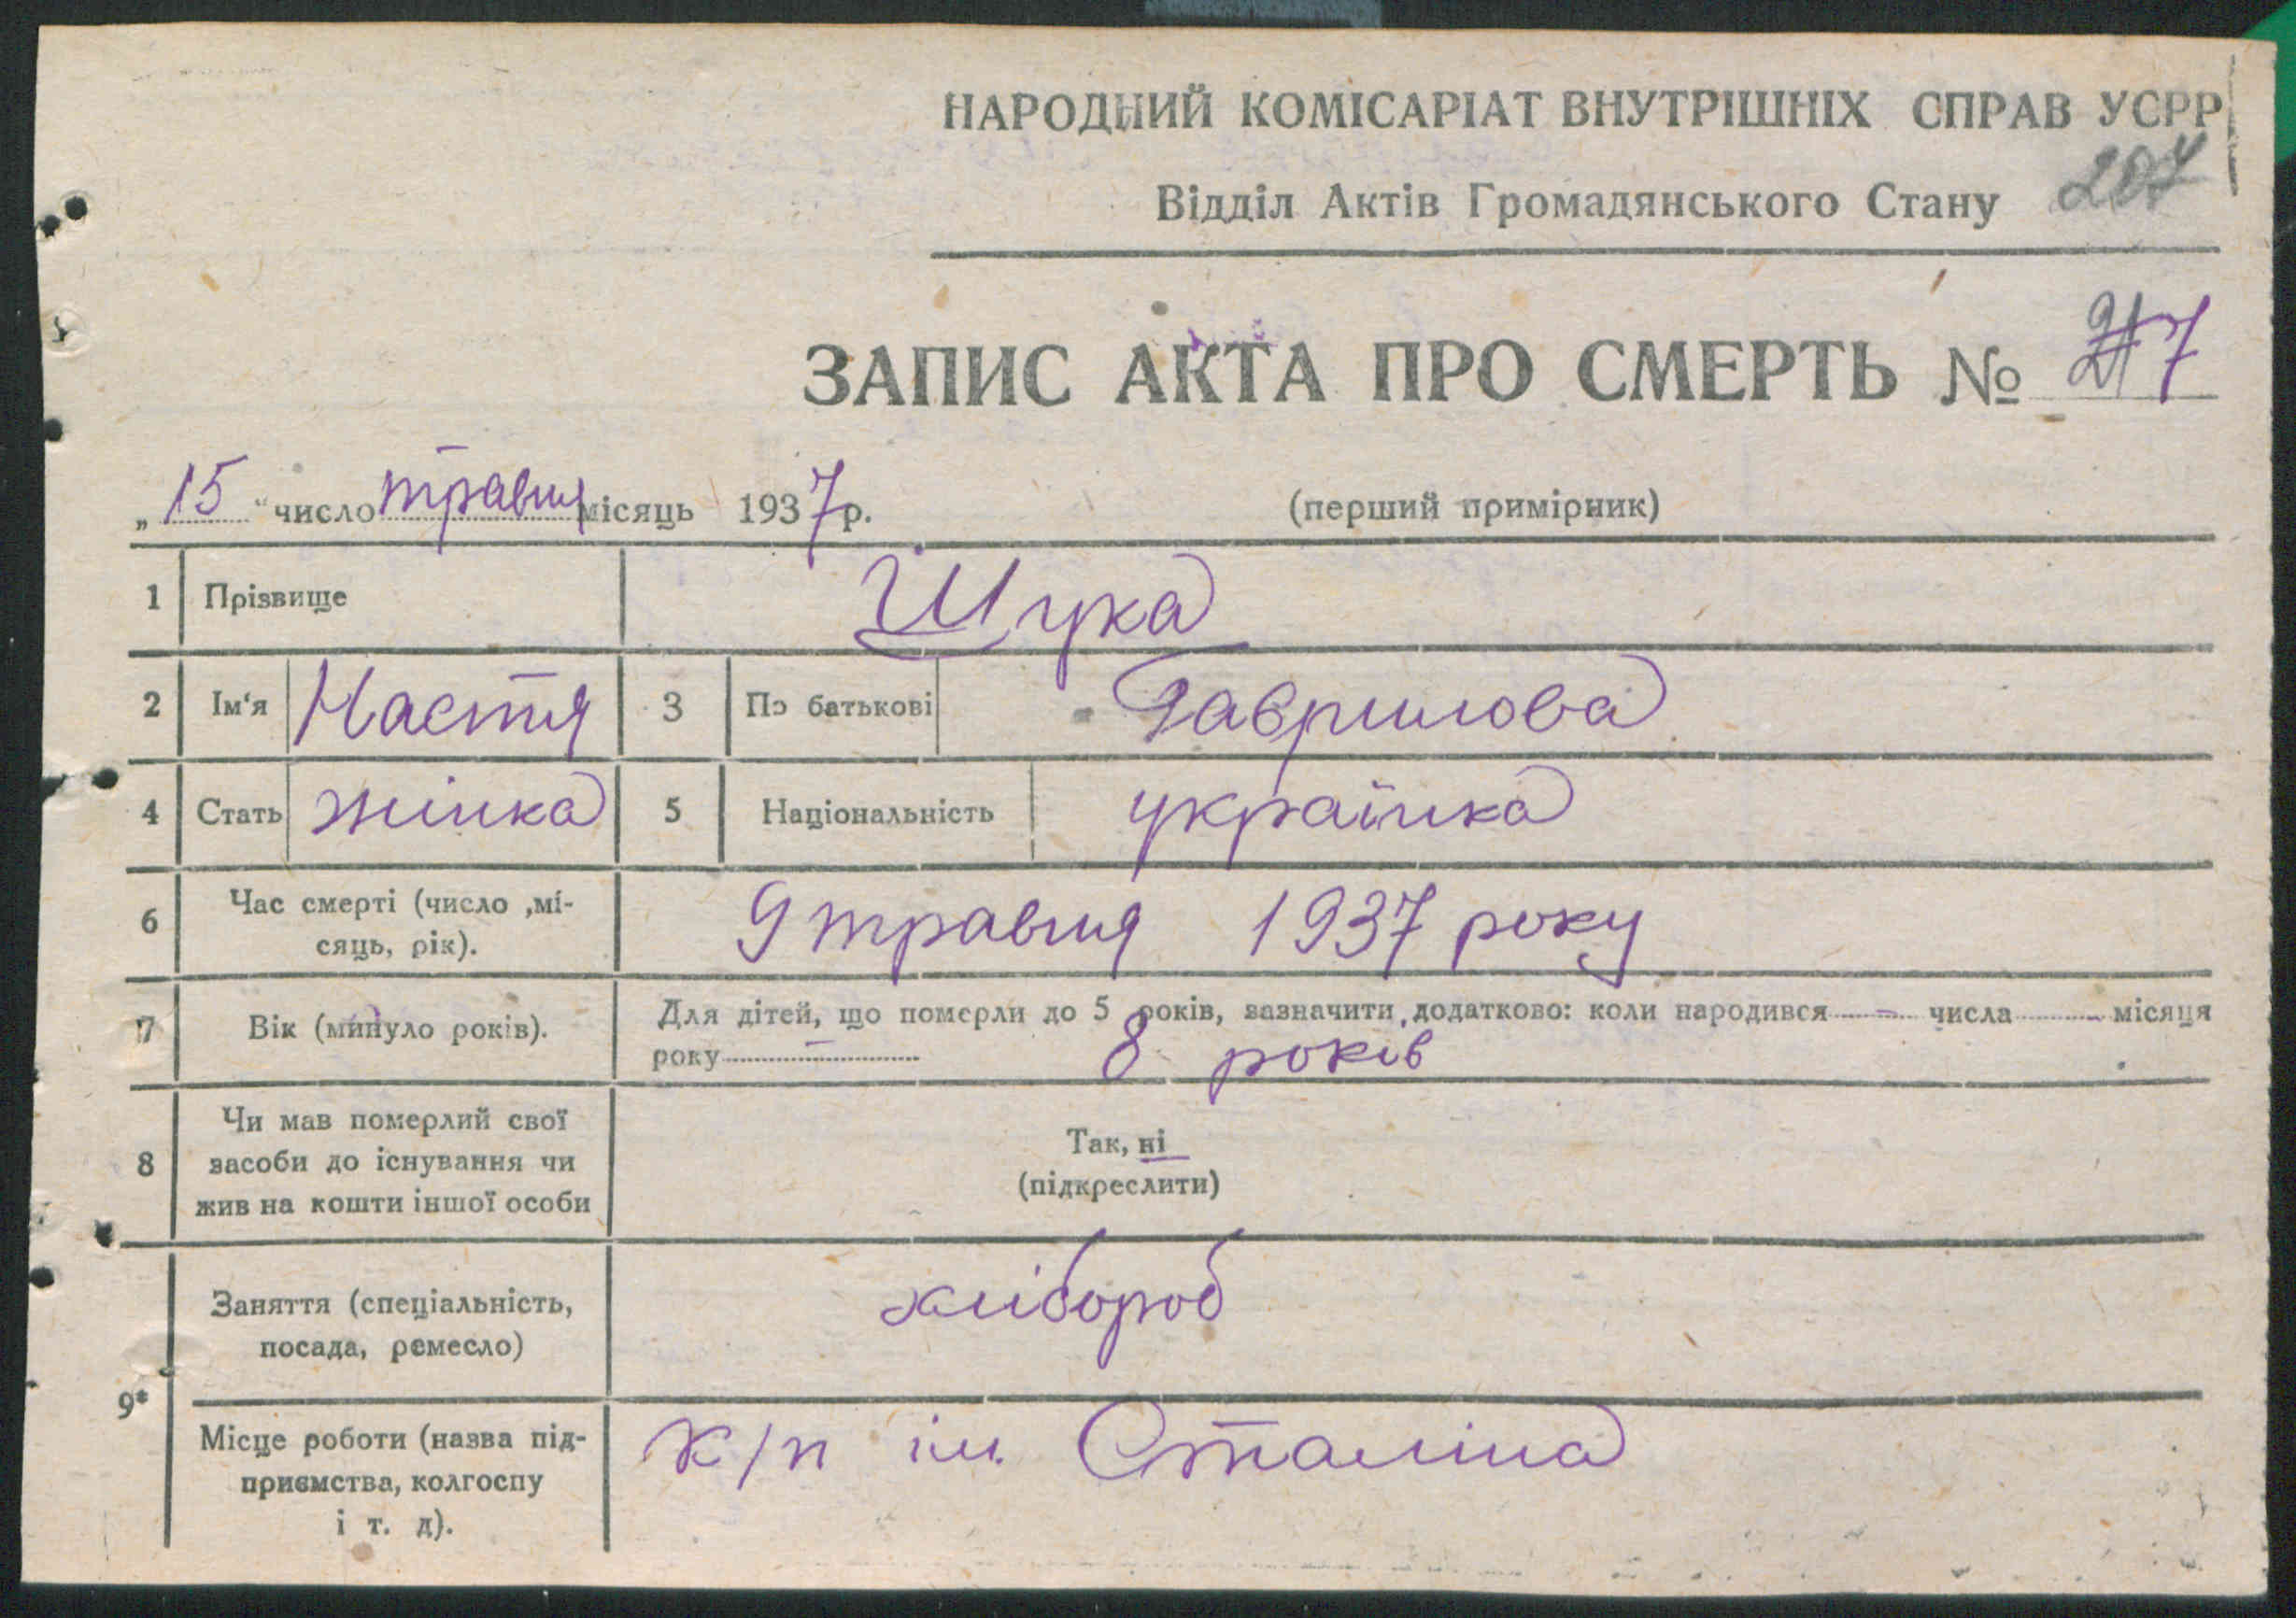 НАРОДНИЙ КОМІСАРІАТ ВНУТРІШНІХ СПРАВ УСРР
Відділ Актів Громадянського Стану 207
ЗАПИС АКТА ПРО СМЕРТЬ №
„15“ число травня місяць 1937р. (перший примірник)
1 Прізвище Щука
2 Ім‘я Настя 3 По батькові Гаврилова
4 Стать жінка 5 Національність українка
6 Час смерті (число ,мі-
сяць, рік). 9 травня 1937 року
7 Вік (минуло років). Для дітей, що померли до 5 років, зазначити додатково: коли народився – числа – місяця
року – 8 років
8 Чи мав померлий свої
засоби до існування чи
жив на кошти іншої особи
Так, ні
(підкреслити)
9*
Заняття (спеціальність,
посада, ремесло) хлібороб
Місце роботи (назва під-
приємства, колгоспу
і т. д). к/п ім. Сталіна